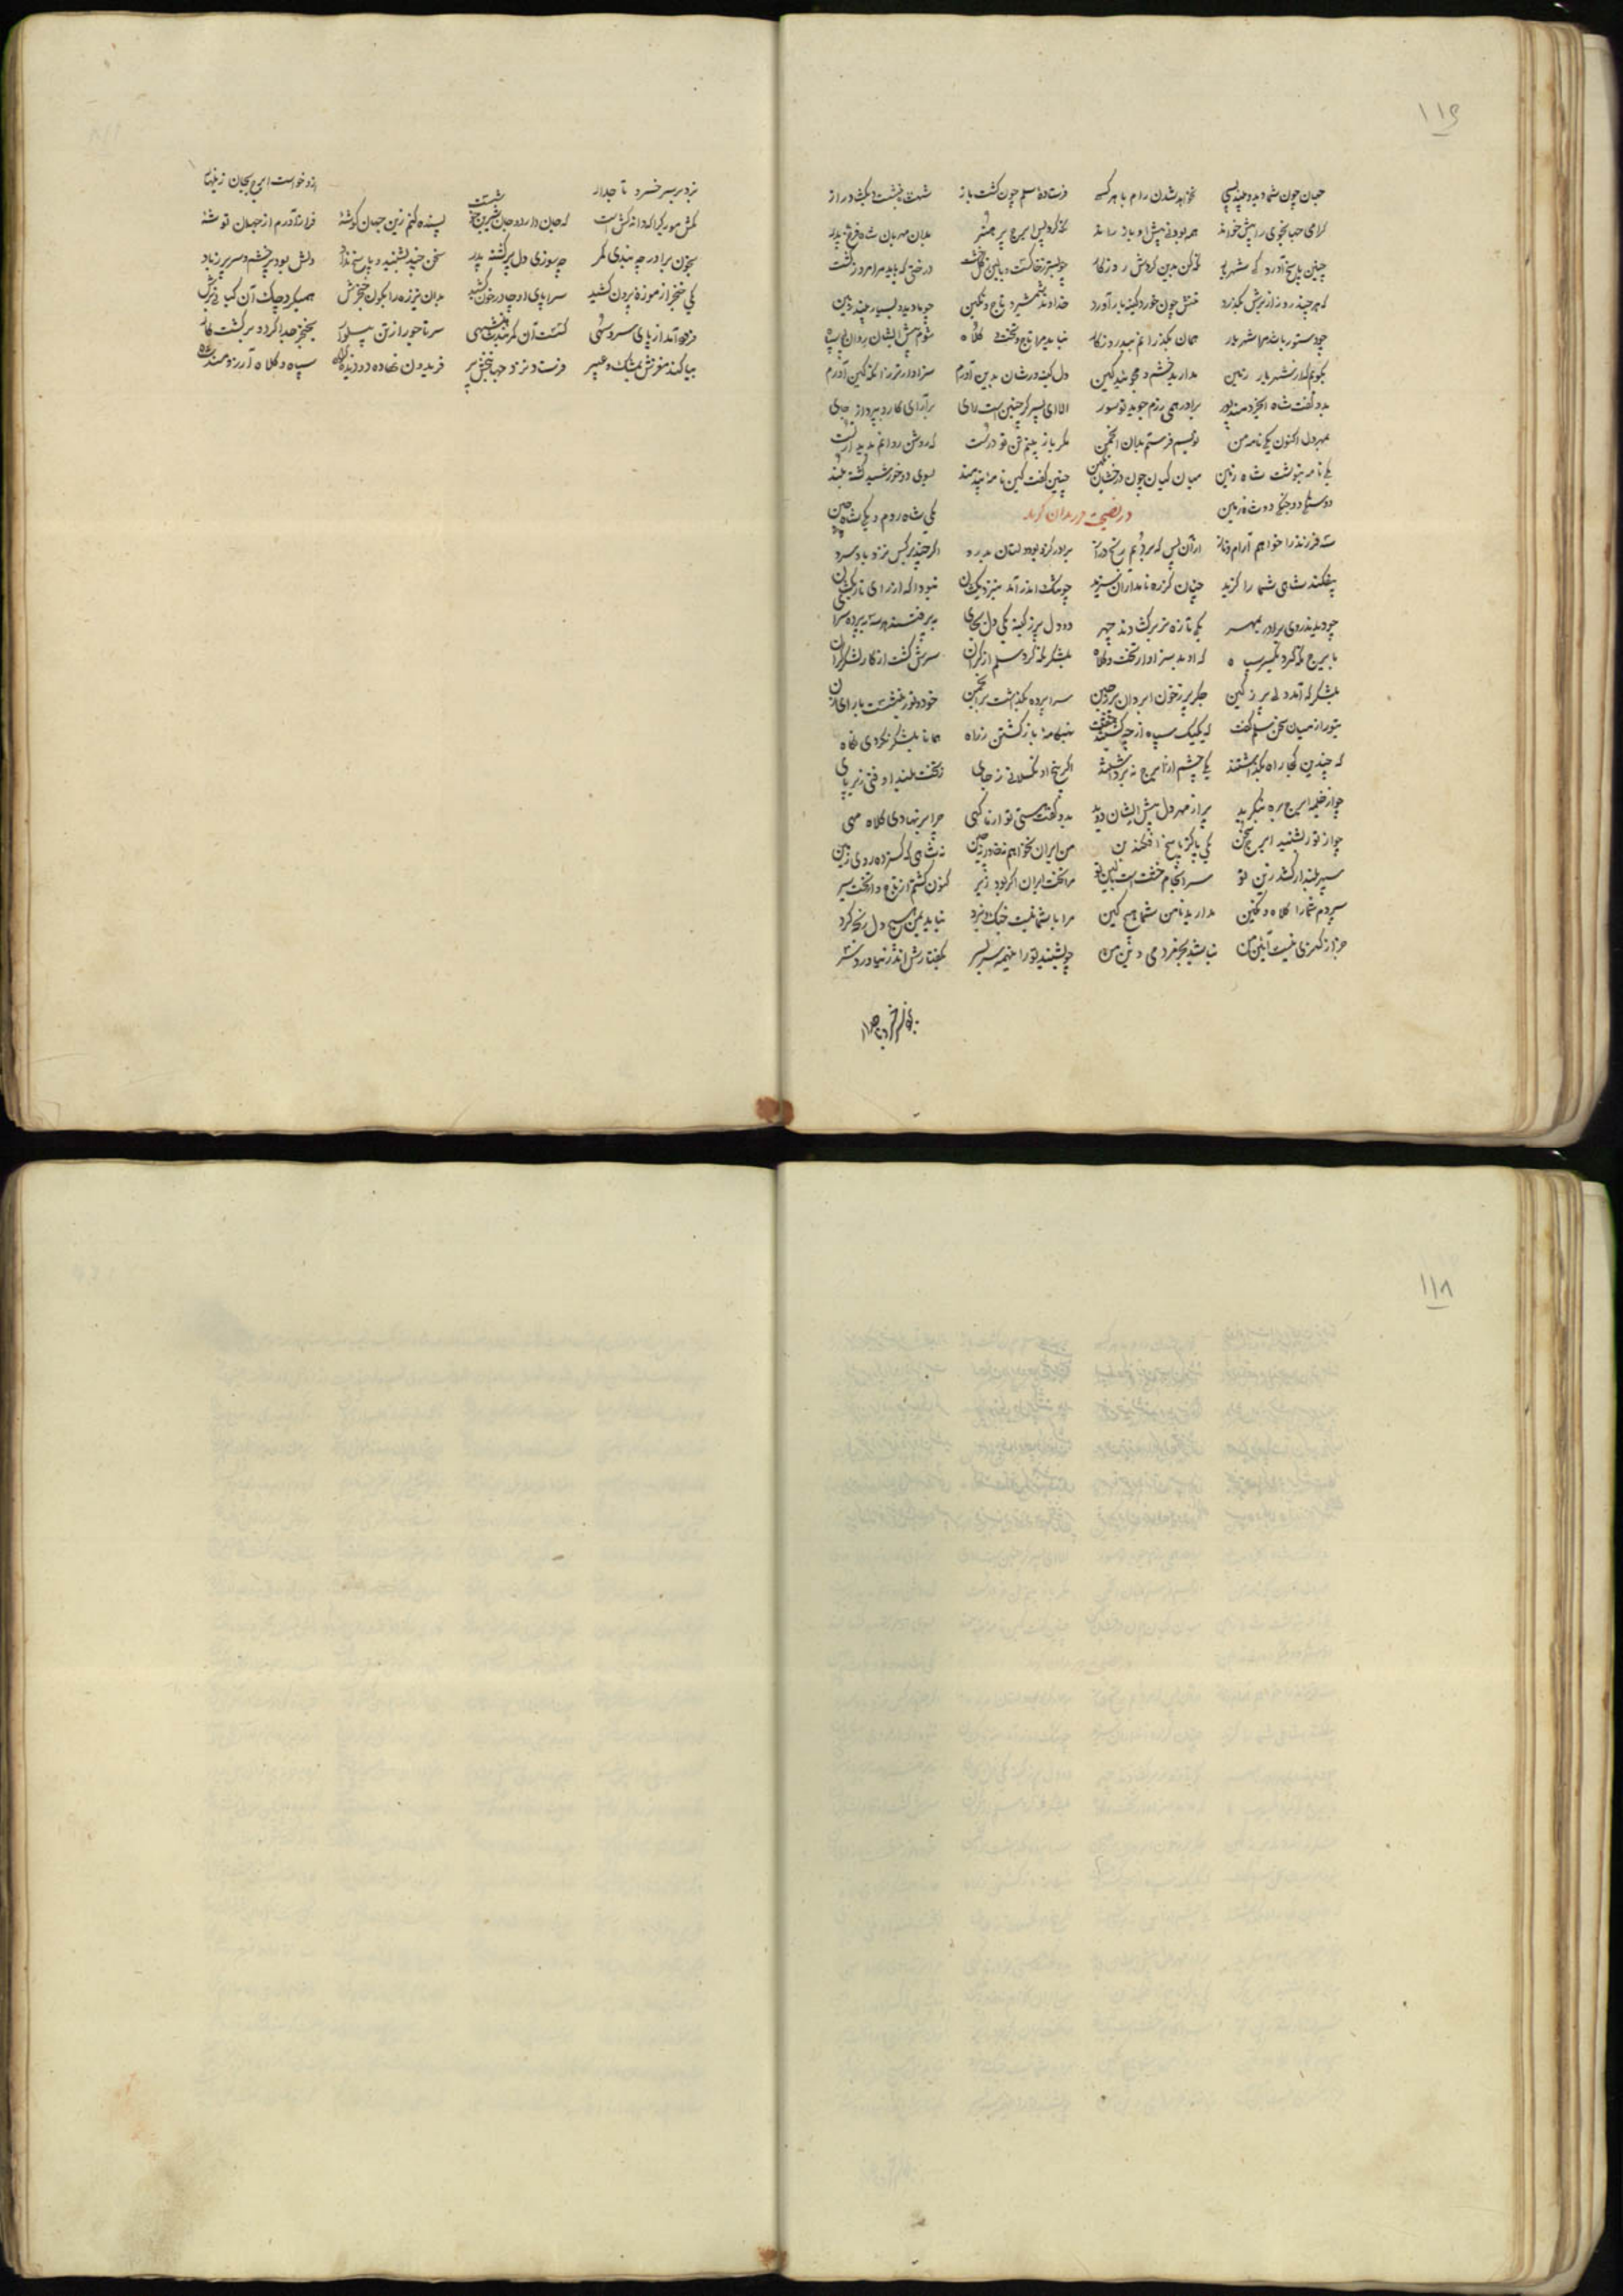 ۱۱۶
جهان چون شما دید و بیند بسی نخواهد شدن رام با هر کسی فرستادهٔ سلم چون گشت باز شهنشه بنشست و بگشاد راز
گرامی جهانجوی را پیش خواند همه بودنی پیش او باز راند نگه کرد پس ایرج پر هنر بدان مهربان شاه فرخ پدر
چنین پاسخ آورد که شهریار نگه کن بدین گردش روزگار چو بستر ز خاکست و بالین ز خشت درختی که باید مرا امروز کشت
که هر چند روز از برش بگذرد تنش چون خورد کینه بار آورد خداوند شمشیر و تاج و نگین چو ما دید و بسیار بیند زمین
چو دستور باشد مرا شهریار همان بگذرانم ببد روزگار نباید مرا تاج و تخت و کلاه شوم پیش ایشان دوان بی سپاه
بگویم که ای شهریار زمین مدارید خشم و مجویید کین دل کینه ورشان بدین آورم سزاوارتر زانکه کین آورم
بدو گفت شاه ای خردمند پور برادر همی رزم جوید تو سور الا ای پسر گر چنین است رای بر آرای کار و بپرداز جای
بهر دل اکنون یکی نامه من نویسم فرستم بدان انجمن مگر باز بینم تن تو درست که روشن روانم بدیدار تست
یکی نامه بنوشت شاه زمین میان کیان چون درخشان نگین چنین گفت کین نامهٔ پندمند بسوی دو خورشید گشته بلند
دو سنگی دو جنگی دو شاه زمین در نصیحت یکی شاه روم و یکی شاه چین
سه فرزند را خواهم آرام و ناز از آن پس که بردیم رنج دراز برادر کزو بود دلتان بدرد اگر چند بر کس نزد باد سرد
بیفکند شاهی شما را گزید چنان کز ره نامداران سزید چو تنگ اندر آمد بنزدیکشان نبود آگه از رای تاریکشان
چو دیدند روی برادر بمهر یکی تازه تر برگشادند چهر دو دل پر ز کینه یکی دل بجای برفتند هر سه به پرده سرای
به ایرج نگه کرد یکسر سپاه که او بد سزاوار تخت و کلاه بلشکر نگه کرد سلم از کران سرش گشت از کار لشکر گران
بلشکرگه آمد دلی پر ز کین جگر پر ز خون ابروان پر ز چین سراپرده بگذاشت بر انجمن خود و تور بنشست با رای زن
بتور از میان سخن سلم گفت که یک یک سپاه از چه گشتند جفت بهنگامهٔ بازگشتن ز راه همانا بلشکر نکردی نگاه
که چندین کجا راه بگذاشتند یکی چشم از ایرج نه برداشتند اگر بیخ او نگسلانی ز جای ز تخت بلند اوفتی زیر پای
چو از خیمه ایرج بره بنگرید پر از مهر دل پیش ایشان دوید بدو گفت هستی تو از ما کهی چرا بر نهادی کلاه مهی
چو از تور بشنید ایرج سخن یکی پاکتر پاسخ افکند بن من ایران نخواهم نه خاور نه چین نه شاهی که گسترده روی زمین
سپهر بلند ار کشد زین تو سرانجام خشت است بالین تو مرا تخت ایران اگر بود زیر کنون گشتم از تاج و از تخت سیر
سپردم شما را کلاه و نگین مدارید با من شما هیچ کین مرا با شما نیست جنگ و نبرد نباید بمن هیچ دل رنجه کرد
جز از کهتری نیست آیین من نباشد بجز مردمی دین من چو بشنید تور این همه سربسر بگفتارش اندر نیاورد سر
بزد بر سر خسرو تاجدار ازو خواست ایرج بجان زینهار
مکش مورکی را که دانه کش است که جان دارد و جان شیرین خوش است پسنده کنم زین جهان گوشهٔ فراز آورم از جهان توشهٔ
بخون برادر چه بندی کمر چه سوزی دل پیر گشته پدر سخن چند بشنید و پاسخ نداد دلش بود پر خشم و سر پر ز باد
یکی خنجر از موزه بیرون کشید سراپای او چادر خون کشید بدان تیز زهر آبگون خنجرش همی کرد چاک آن کیانی برش
فرود آمد از پای سرو سهی گسست آن کمرگاه شاهنشهی سر تاجور از تن پیلوار بخنجر جدا کرد و برگشت کار
بیاکند مغزش بمشک و عبیر فرستاد نزد جهانبخش پیر فریدون نهاده دو دیده براه سپاه و کلاه آرزومند شاه
۱۱۸